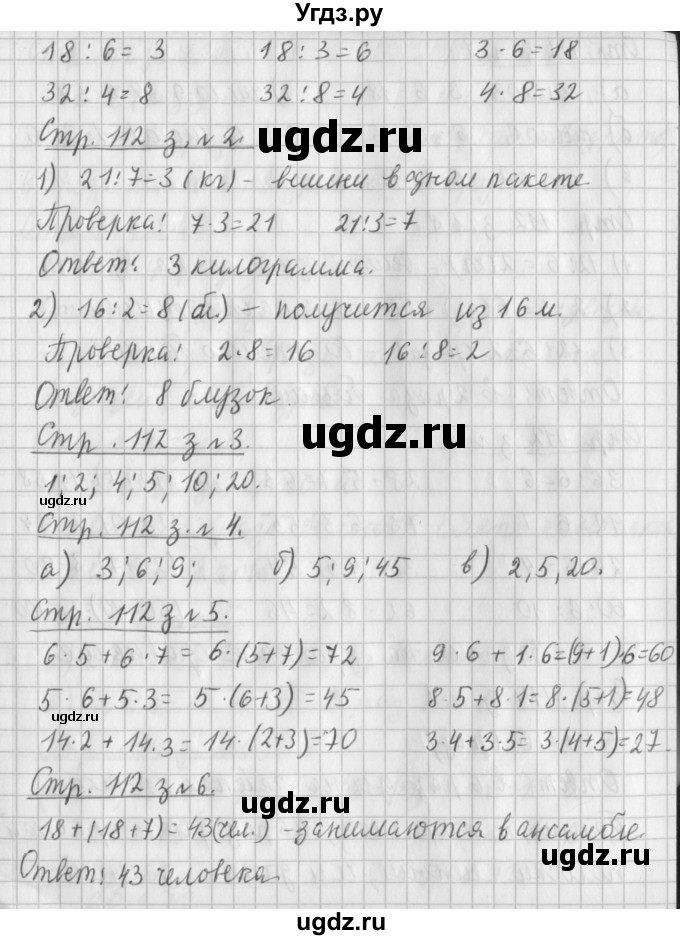 Угдз.ру
18 : 6 = 3 18 : 3 = 6 3 · 6 = 18
32 : 4 = 8 32 : 8 = 4 4 · 8 = 32
Стр. 112 з. № 2.
ugdz.ru
ugdz.ru
1) 21 : 7 = 3 (кг) - вишни в одном пакете
Проверка: 7·3=21 21:3=7
Ответ: 3 килограмма.
2) 16 : 2 = 8 (бл.) - получится из 16 м.
Проверка: 2·8=16 16:8=2
Ответ: 8 блузок.
Стр. 112 з № 3.
ugdz.ru
1; 2; 4; 5; 10; 20.
ugdz.ru
Стр. 112 з. № 4.
а) 3; 6; 9; б) 5; 9; 45 в) 2, 5, 20.
Стр. 112 з № 5.
6·5+6·7 = 6·(5+7)=72 9·6+1·6=(9+1)6=60
5·6+5·3= 5·(6+3)=45 8·5+8·1=8·(5+1)=48
ugdz.ru
14·2+14·3=14·(2+3)=70 3·4+3·5=3·(4+5)=27.
Стр. 112 з № 6.
ugdz.ru
ugdz.ru
18+(18+7)=43(чел.) - занимаются в ансамбле.
Ответ: 43 человека.
ugdz.ru
ugdz.ru